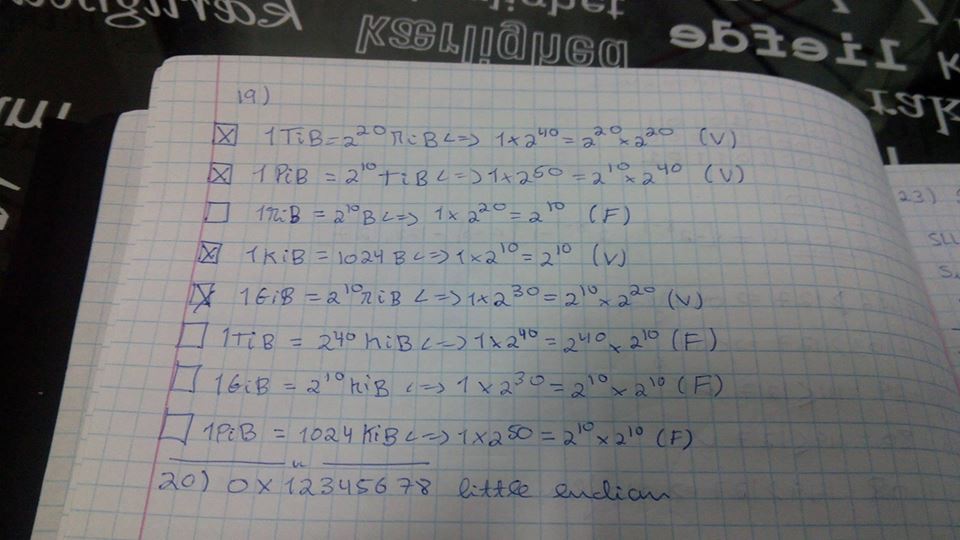 Kærlighed
liefde
19)
☒ 1TiB = 2^20 MiB <=> 1x2^40 = 2^20 x 2^20 (V)
☒ 1PiB = 2^10 TiB <=> 1x2^50 = 2^10 x 2^40 (V)
☐ 1MiB = 2^10 B <=> 1x2^20 = 2^10 (F)
☒ 1KiB = 1024 B <=> 1x2^10 = 2^10 (V)
☒ 1GiB = 2^10 MiB <=> 1x2^30 = 2^10 x 2^20 (V)
☐ 1TiB = 2^40 KiB <=> 1x2^40 = 2^40 x 2^10 (F)
☐ 1GiB = 2^10 KiB <=> 1x2^30 = 2^10 x 2^10 (F)
☐ 1PiB = 1024 KiB <=> 1x2^50 = 2^10 x 2^10 (F)
20) 0x12345678 little endian
23)